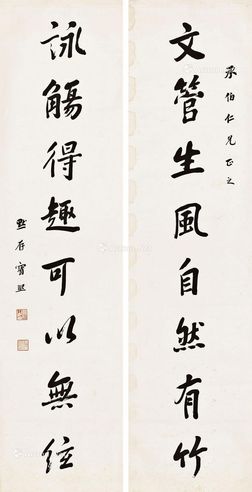 承伯仁兄正之
文管生風自然有竹
詠觴得趣可以無弦